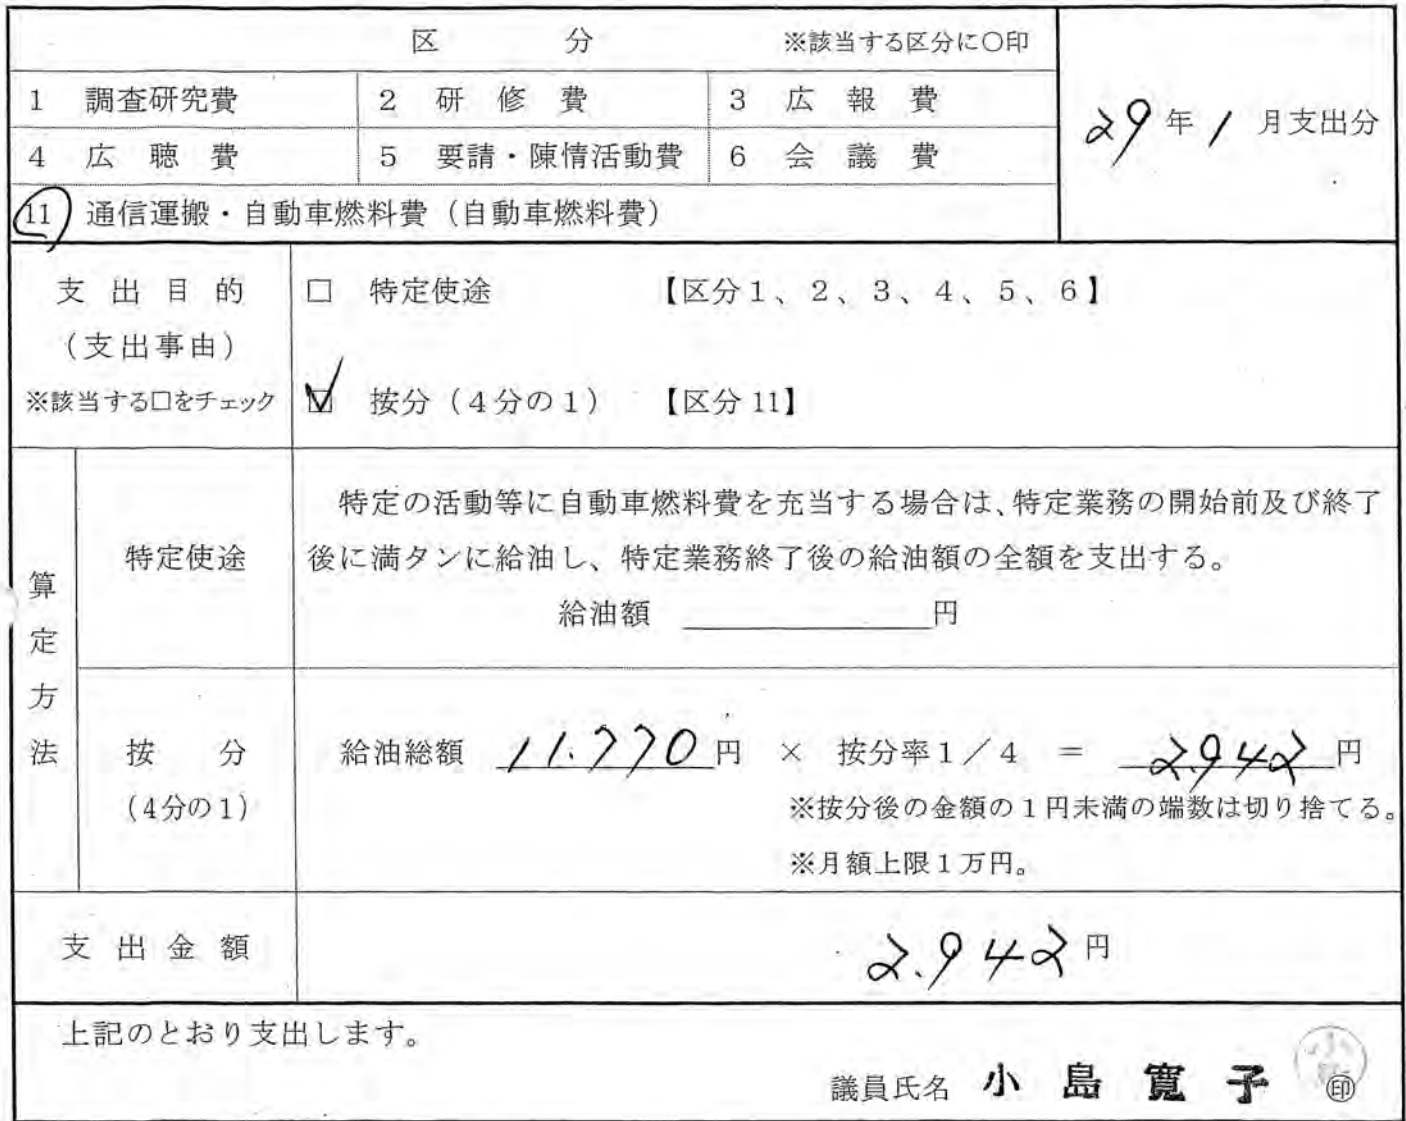 区 分 ※該当する区分に○印
1 調査研究費 2 研修費 3 広報費
29年1月支出分
4 広聴費 5 要請・陳情活動費 6 会議費
11 通信運搬・自動車燃料費(自動車燃料費)
支出目的
(支出事由)
※該当する□をチェック
□ 特定使途 【区分1、2、3、4、5、6】
☑ 按分(4分の1) 【区分11】
算定方法
特定使途
特定の活動等に自動車燃料費を充当する場合は、特定業務の開始前及び終了
後に満タンに給油し、特定業務終了後の給油額の全額を支出する。
給油額 円
按分
(4分の1)
給油総額 11.770円 × 按分率1/4 = 2.942円
※按分後の金額の1円未満の端数は切り捨てる。
※月額上限1万円。
支出金額 2.942円
上記のとおり支出します。
議員氏名 小島寛子 ㊞